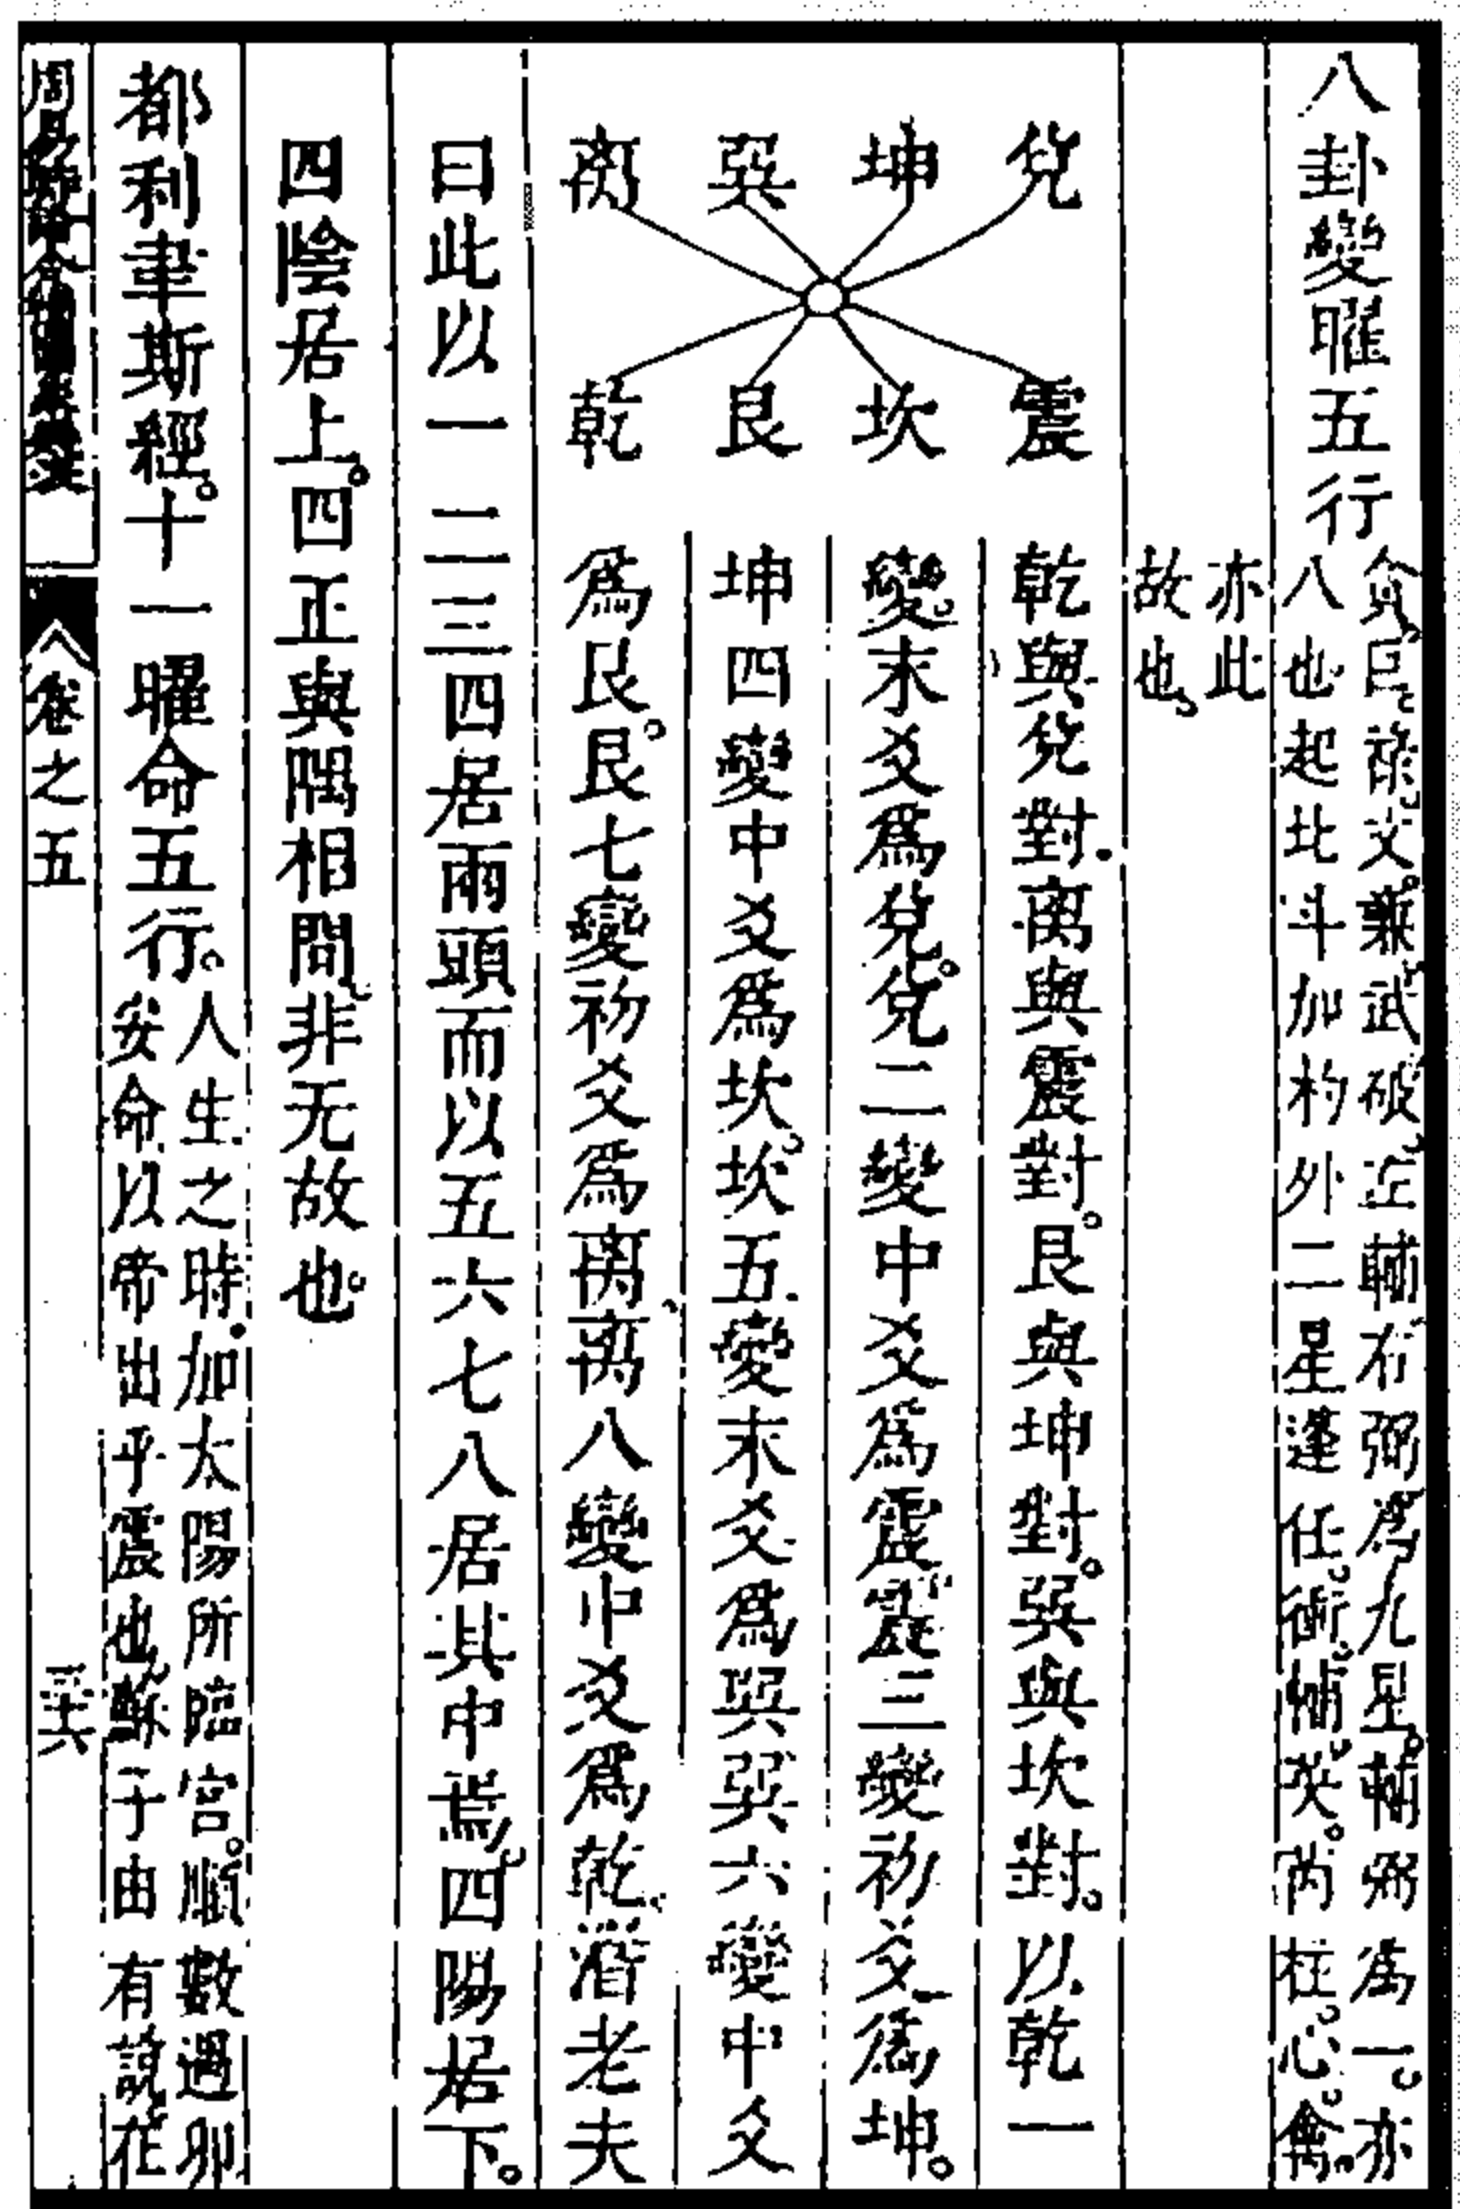 八卦變曜五行
貪。巨。祿。文。兼。武。破。左輔右弼為九星。輔弼為一。亦
八也起北斗加杓外二星蓬任。衝。輔。英。芮柱。心。禽。
亦此
故也。
兌 坤 巽 离
震 坎 艮 乾
乾與兌對。离與震對。艮與坤對。巽與坎對。以乾一
變。末爻爲兌。兌二變中爻爲震震三變初爻爲坤。
坤四變中爻爲坎。坎五變末爻爲巽巽六變中爻
爲艮。艮七變初爻爲离离八變中爻爲乾。潛老夫
曰此以一二三四居兩頭而以五六七八居其中焉。四陽居下。
四陰居上。四正與隅相間。非无故也。
都利聿斯經。十一曜命五行。
人生之時。加太陽所臨宮。順數遇卯
安命以帝出乎震也。蘇子由有說。在
卷之五